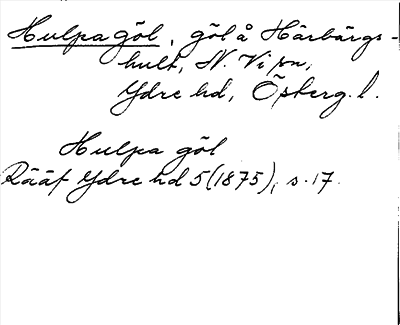 Hulpa göl, göl å Härbärgs-
hult, N. Vi sn,
Ydre hd, Österg. l.
Hulpa göl
Rääf Ydre hd 5 (1875), s. 17.